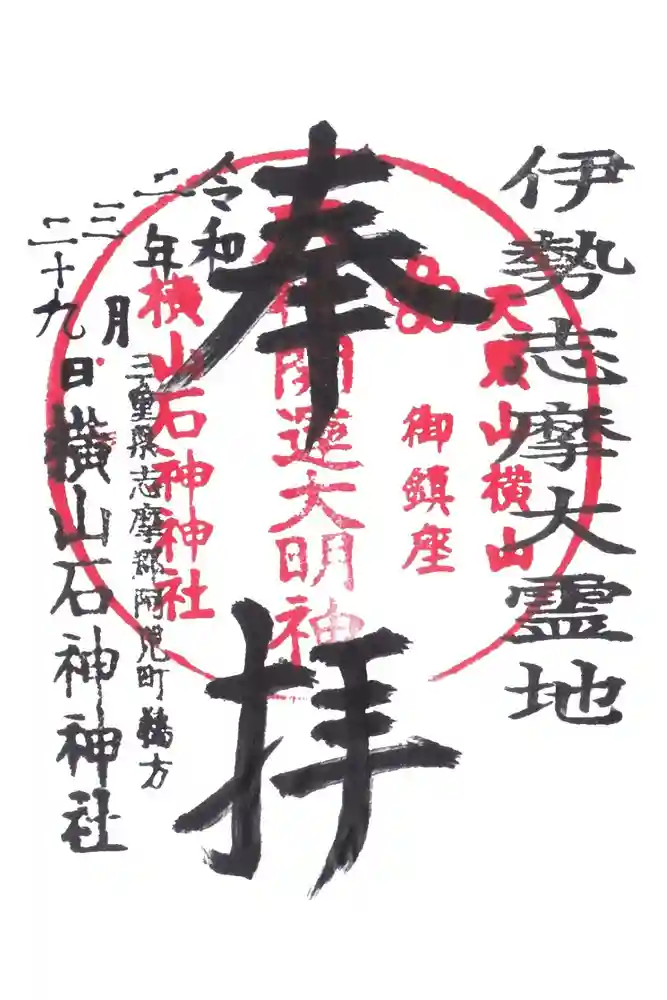 伊勢志摩大霊地
天
山横山
御鎮座
奉拝
開運大明神
横山石神神社
令和
二年
三月
二十九日
三重県志摩郡阿児町鵜方
横山石神神社